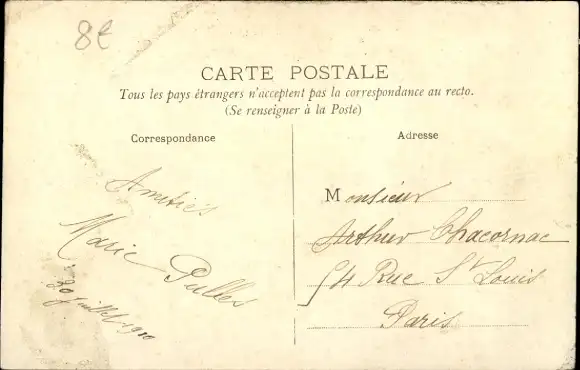 8€
CARTE POSTALE
Tous les pays étrangers n'acceptent pas la correspondance au recto.
(Se renseigner à la Poste)
Correspondance
Amitiés
Marie Pulles
30 juillet 1910
Adresse
Monsieur
Arthur Chacornac
54 Rue St Louis
Paris